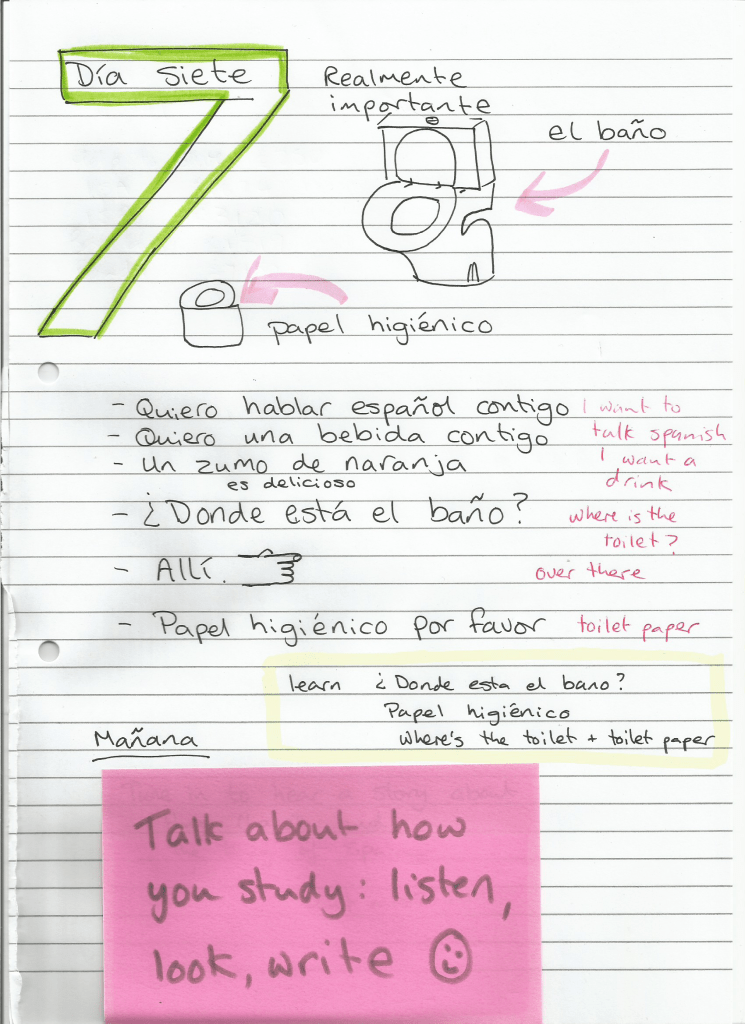 Día siete
Realmente
importante
el baño
papel higiénico
- Quiero hablar español contigo
I want to
talk spanish
- Quiero una bebida contigo
- Un zumo de naranja
es delicioso
I want a
drink
- ¿Donde está el baño?
where is the
toilet?
- Allí.
over there
- Papel higiénico por favor
toilet paper
learn ¿Donde esta el bano?
Papel higiénico
Where's the toilet + toilet paper
Mañana
Talk about how
you study: listen,
look, write